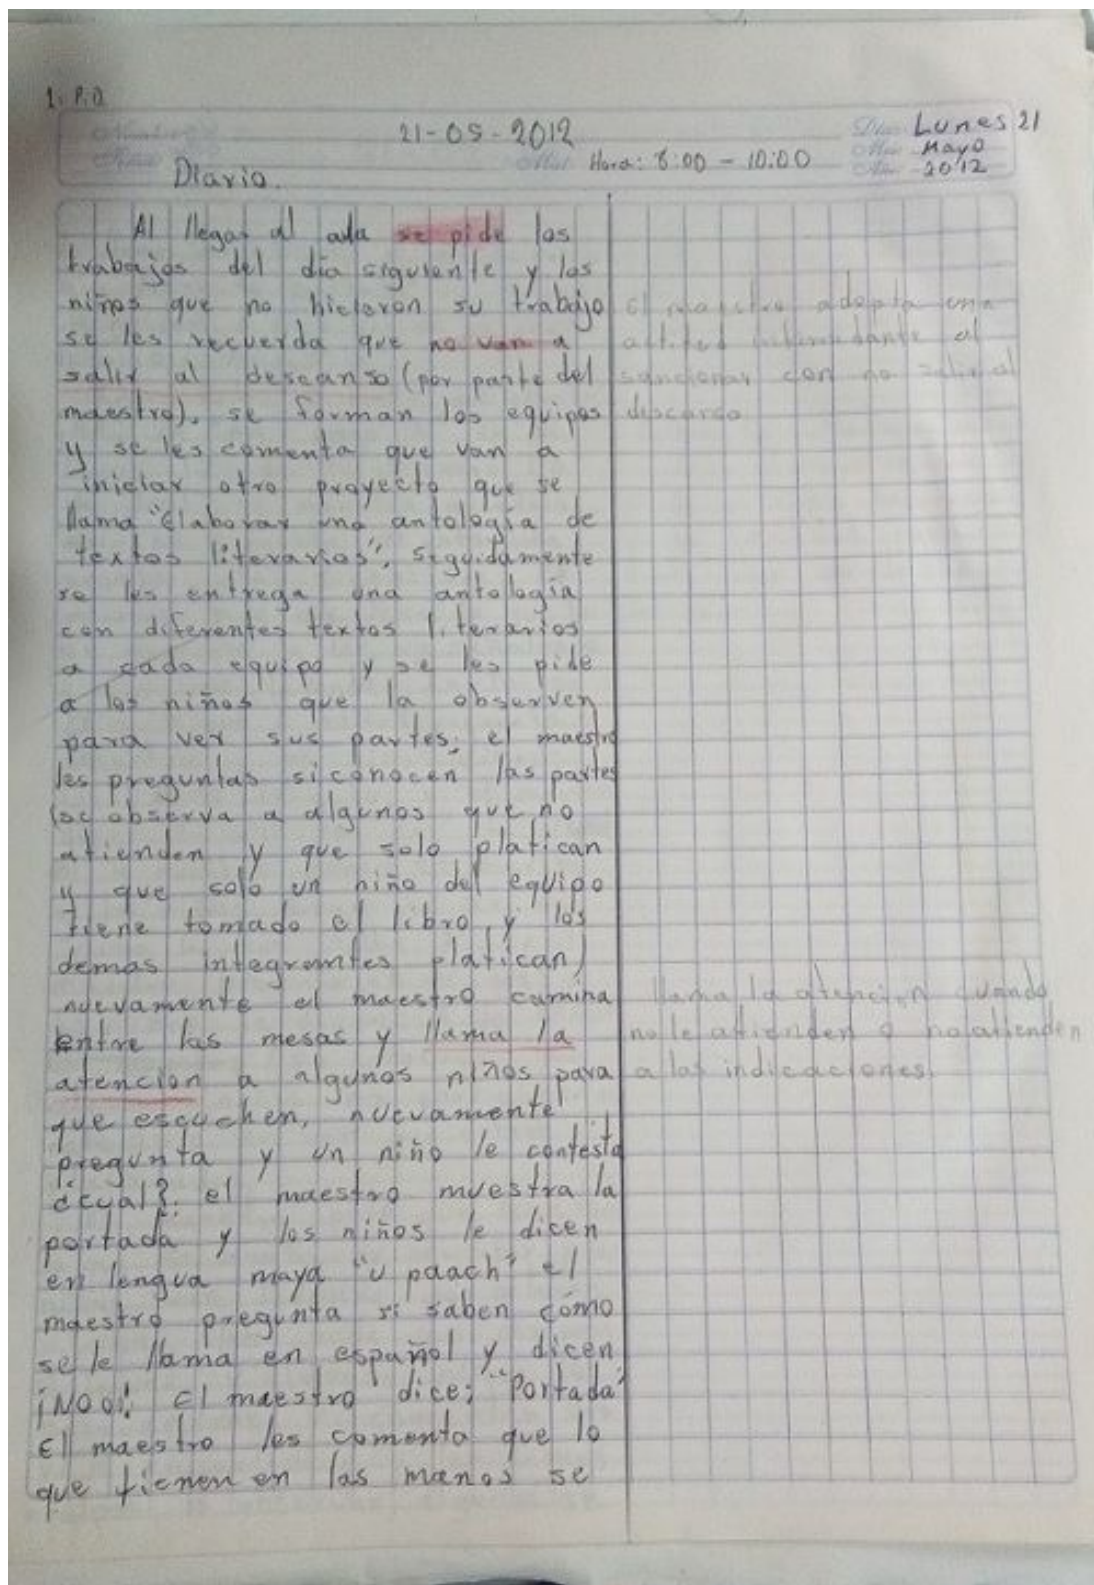 1: P.D
21-05-2012
Lunes 21
Mayo
2012
Hora: 8:00 - 10:00
Diario.
Al llegar al aula se pide los
trabajos del día siguiente y los
niños que no hicieron su trabajo
se les recuerda que no van a
salir al descanso (por parte del
maestro), se forman los equipos
y se les comenta que van a
iniciar otro proyecto que se
llama "Elaborar una antología de
textos literarios", seguidamente
se les entrega una antología
con diferentes textos literarios
a cada equipo y se les pide
a los niños que la observen
para ver sus partes, el maestro
les preguntas si conocen las partes
(se observa a algunos que no
atienden y que solo platican
y que solo un niño del equipo
tiene tomado el libro, y los
demas integrantes platican)
nuevamente el maestro camina
entre las mesas y llama la
atencion a algunos niños para
que escuchen, nuevamente
pregunta y un niño le contesta
¿cual?, el maestro muestra la
portada y los niños le dicen
en lengua maya "u paach" el
maestro pregunta si saben cómo
se le llama en español y dicen
¡Noo!! El maestro dice; "Portada"
El maestro les comenta que lo
que tienen en las manos se
el maestro adopta una
actitud al
sancionar con no salir al
descanso
llama la atención cuando
no le atienden o no atienden
a las indicaciones.